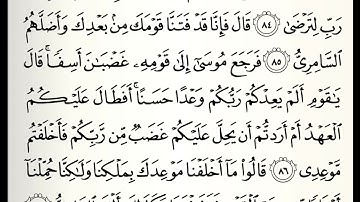 رَبِّ لِتَرْضَىٰ ﴿٨٤﴾ قَالَ فَإِنَّا قَدْ فَتَنَّا قَوْمَكَ مِنۢ بَعْدِكَ وَأَضَلَّهُمُ
ٱلسَّامِرِيُّ ﴿٨٥﴾ فَرَجَعَ مُوسَىٰٓ إِلَىٰ قَوْمِهِۦ غَضْبَٰنَ أَسِفًا ۚ قَالَ
يَٰقَوْمِ أَلَمْ يَعِدْكُمْ رَبُّكُمْ وَعْدًا حَسَنًا ۚ أَفَطَالَ عَلَيْكُمُ
ٱلْعَهْدُ أَمْ أَرَدتُّمْ أَن يَحِلَّ عَلَيْكُمْ غَضَبٌ مِّن رَّبِّكُمْ فَأَخْلَفْتُم
مَّوْعِدِى ﴿٨٦﴾ قَالُوا۟ مَآ أَخْلَفْنَا مَوْعِدَكَ بِمَلْكِنَا وَلَٰكِنَّا حُمِّلْنَآ